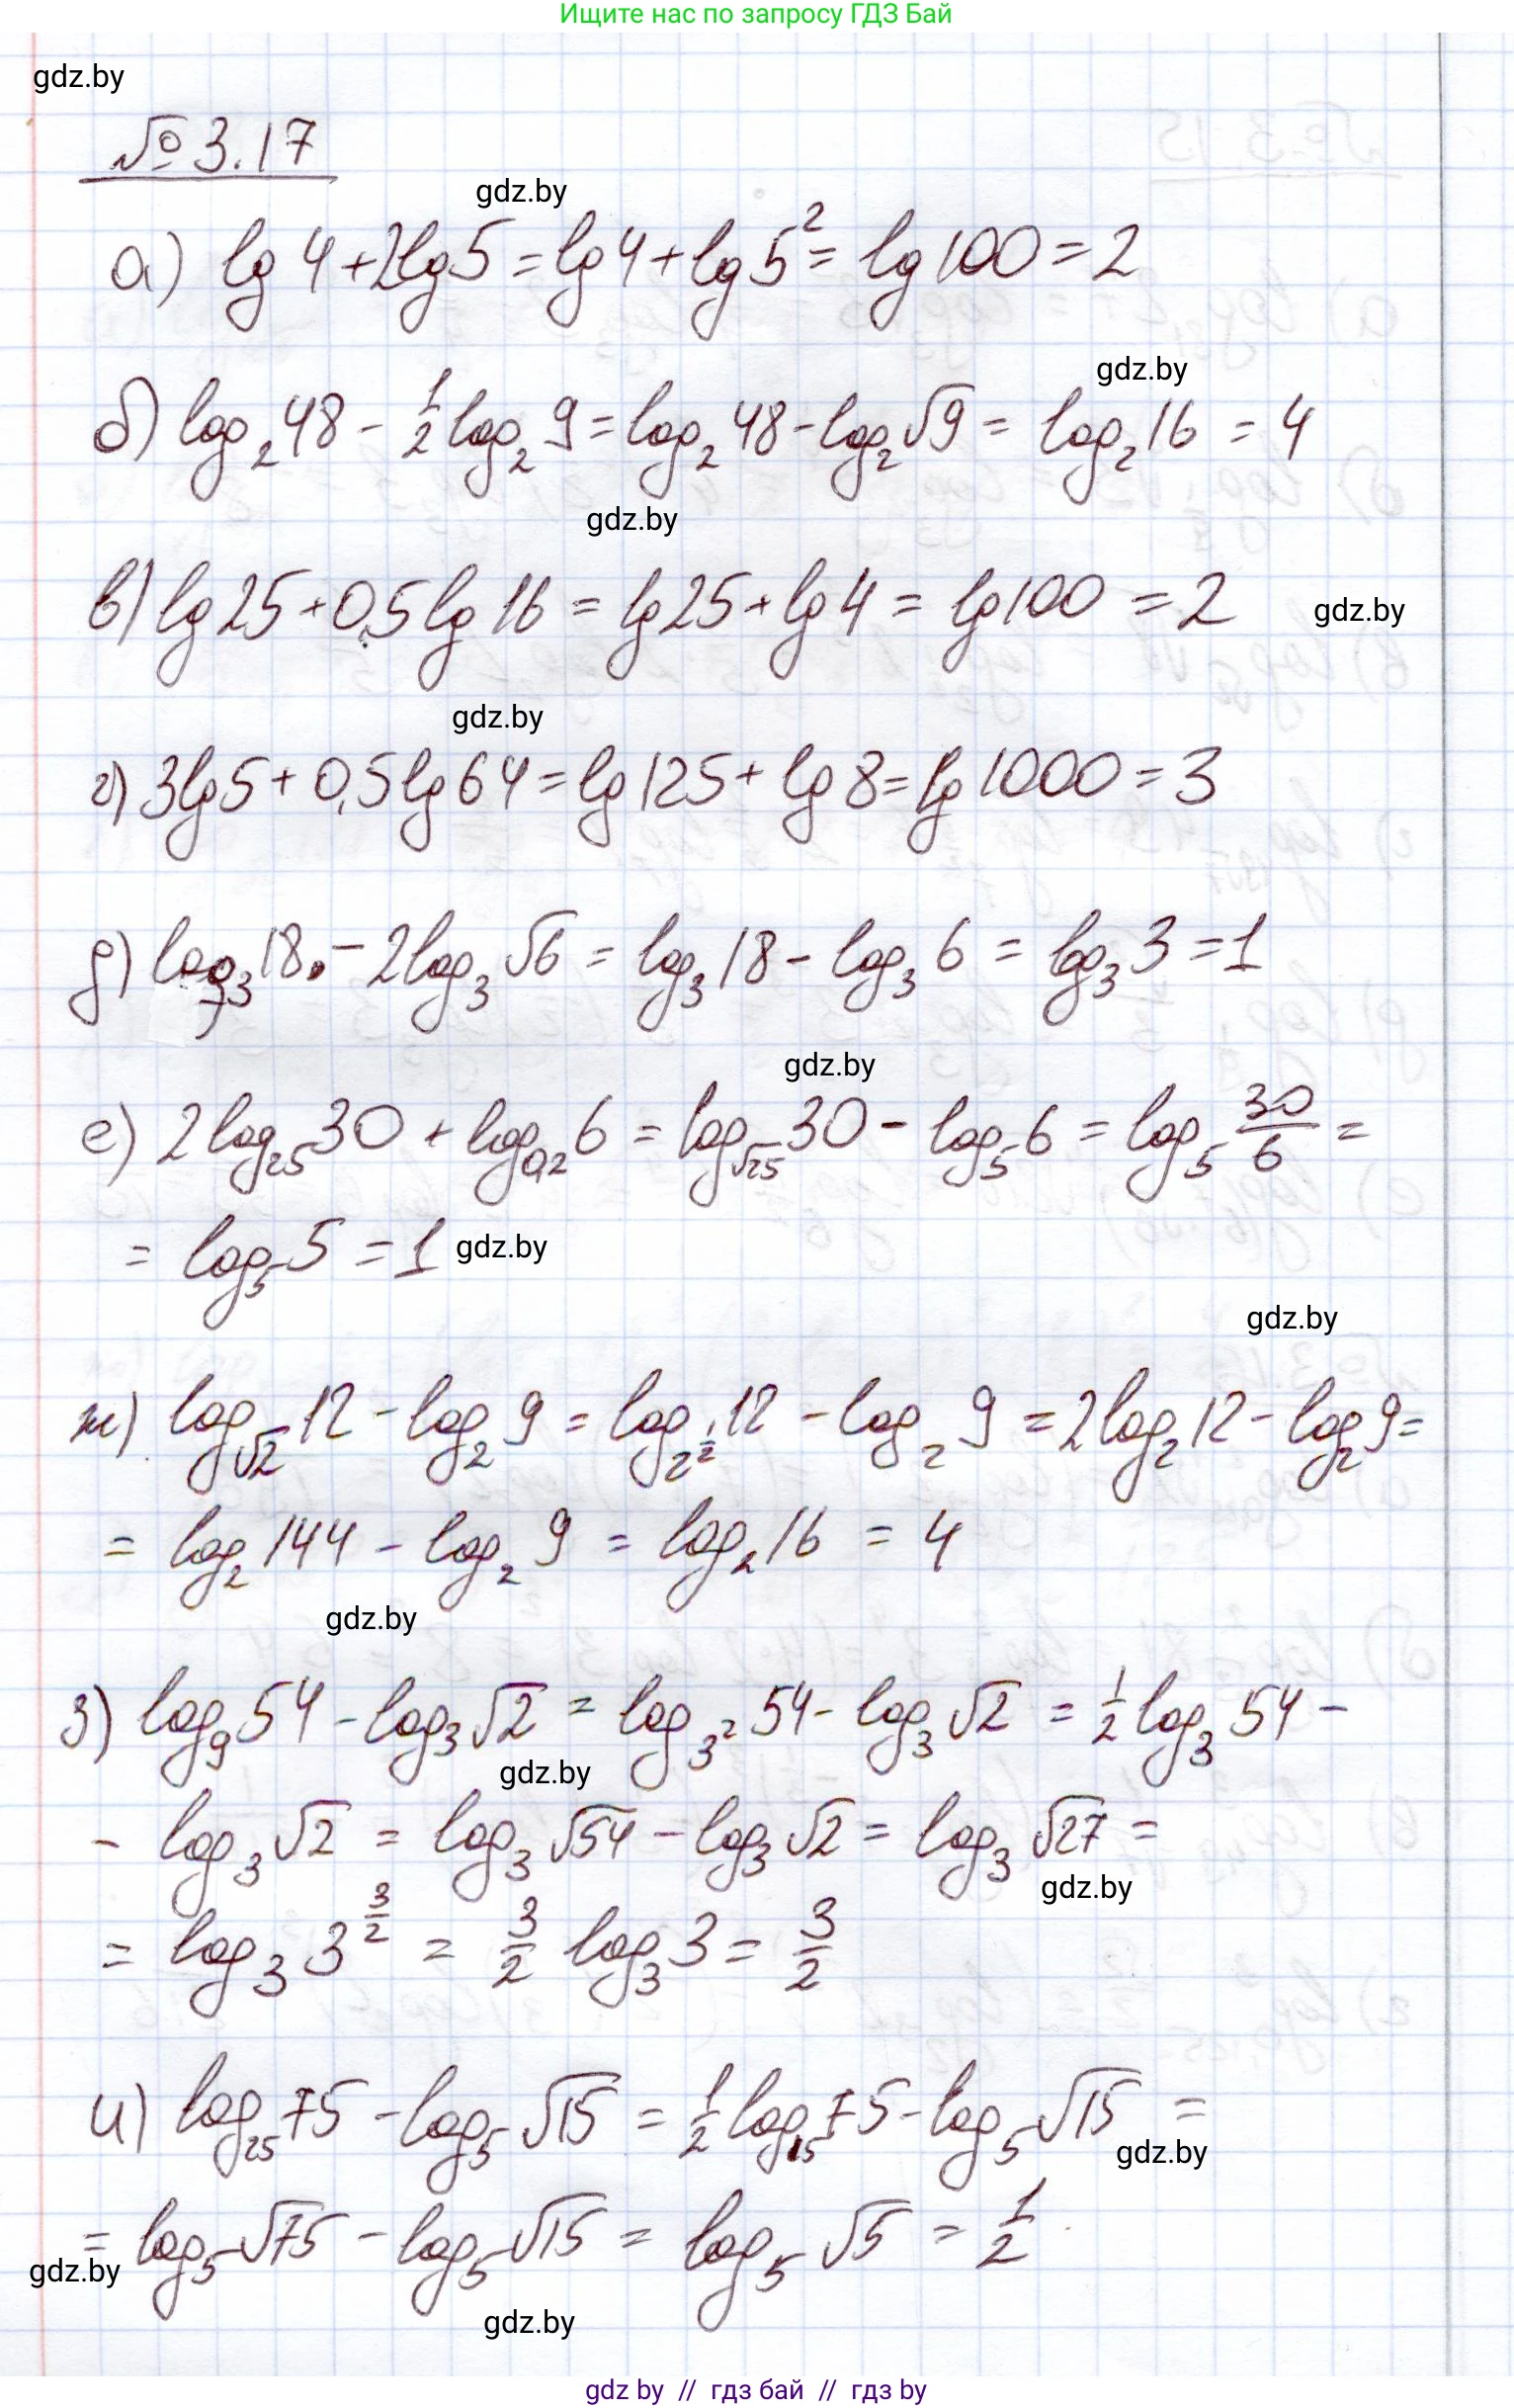 Ищите нас по запросу ГДЗ Бай
gdz.by
№ 3.17
gdz.by
а) lg 4 + 2lg 5 = lg 4 + lg 5² = lg 100 = 2
gdz.by
б) log₂ 48 - 1/2 log₂ 9 = log₂ 48 - log₂ √9 = log₂ 16 = 4
gdz.by
в) lg 25 + 0,5 lg 16 = lg 25 + lg 4 = lg 100 = 2
gdz.by
gdz.by
г) 3lg 5 + 0,5 lg 64 = lg 125 + lg 8 = lg 1000 = 3
д) log₃ 18 - 2log₃ √6 = log₃ 18 - log₃ 6 = log₃ 3 = 1
gdz.by
е) 2log₂₅ 30 + log_0,2 6 = log_√25 30 - log₅ 6 = log₅ 30/6 =
= log₅ 5 = 1
gdz.by
gdz.by
ж) log_√2 12 - log₂ 9 = log_2^(1/2) 12 - log₂ 9 = 2log₂ 12 - log₂ 9 =
= log₂ 144 - log₂ 9 = log₂ 16 = 4
gdz.by
з) log₉ 54 - log₃ √2 = log_3² 54 - log₃ √2 = 1/2 log₃ 54 -
gdz.by
- log₃ √2 = log₃ √54 - log₃ √2 = log₃ √27 =
gdz.by
= log₃ 3^(3/2) = 3/2 log₃ 3 = 3/2
и) log₂₅ 75 - log₅ √15 = 1/2 log₁₅ 75 - log₅ √15 =
gdz.by
= log₅ √75 - log₅ √15 = log₅ √5 = 1/2
gdz.by
gdz.by
gdz.by // гдз бай // гдз by